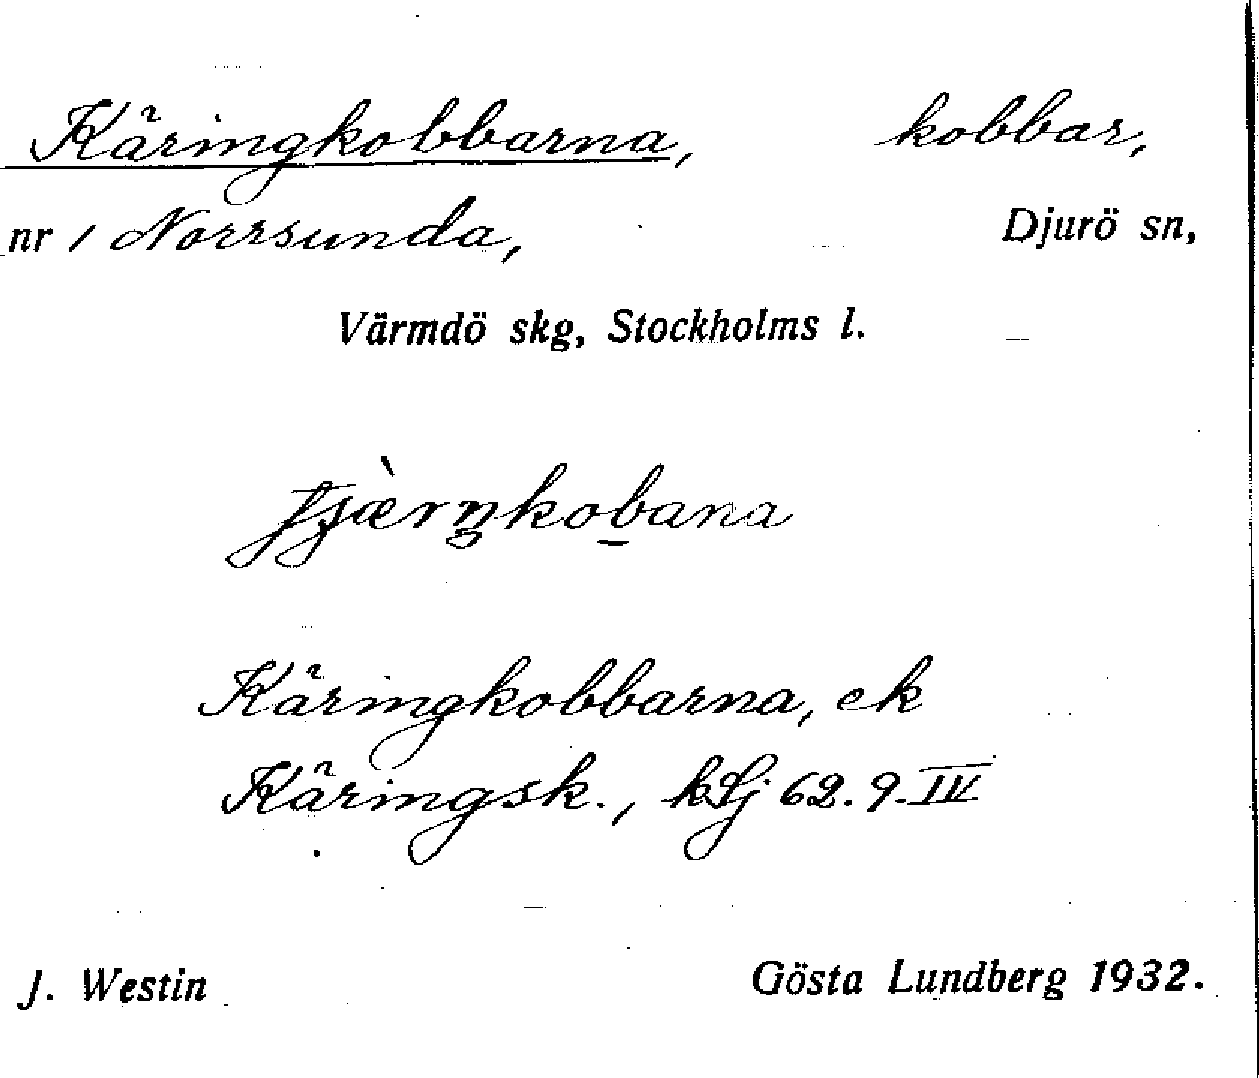 Käringkobbarna, kobbar,
nr 1 Norrsunda, Djurö sn,
Värmdö skg, Stockholms l.
Käringkobbarna, ek
Käringsk., kSj 62. 9. IV
J. Westin Gösta Lundberg 1932.